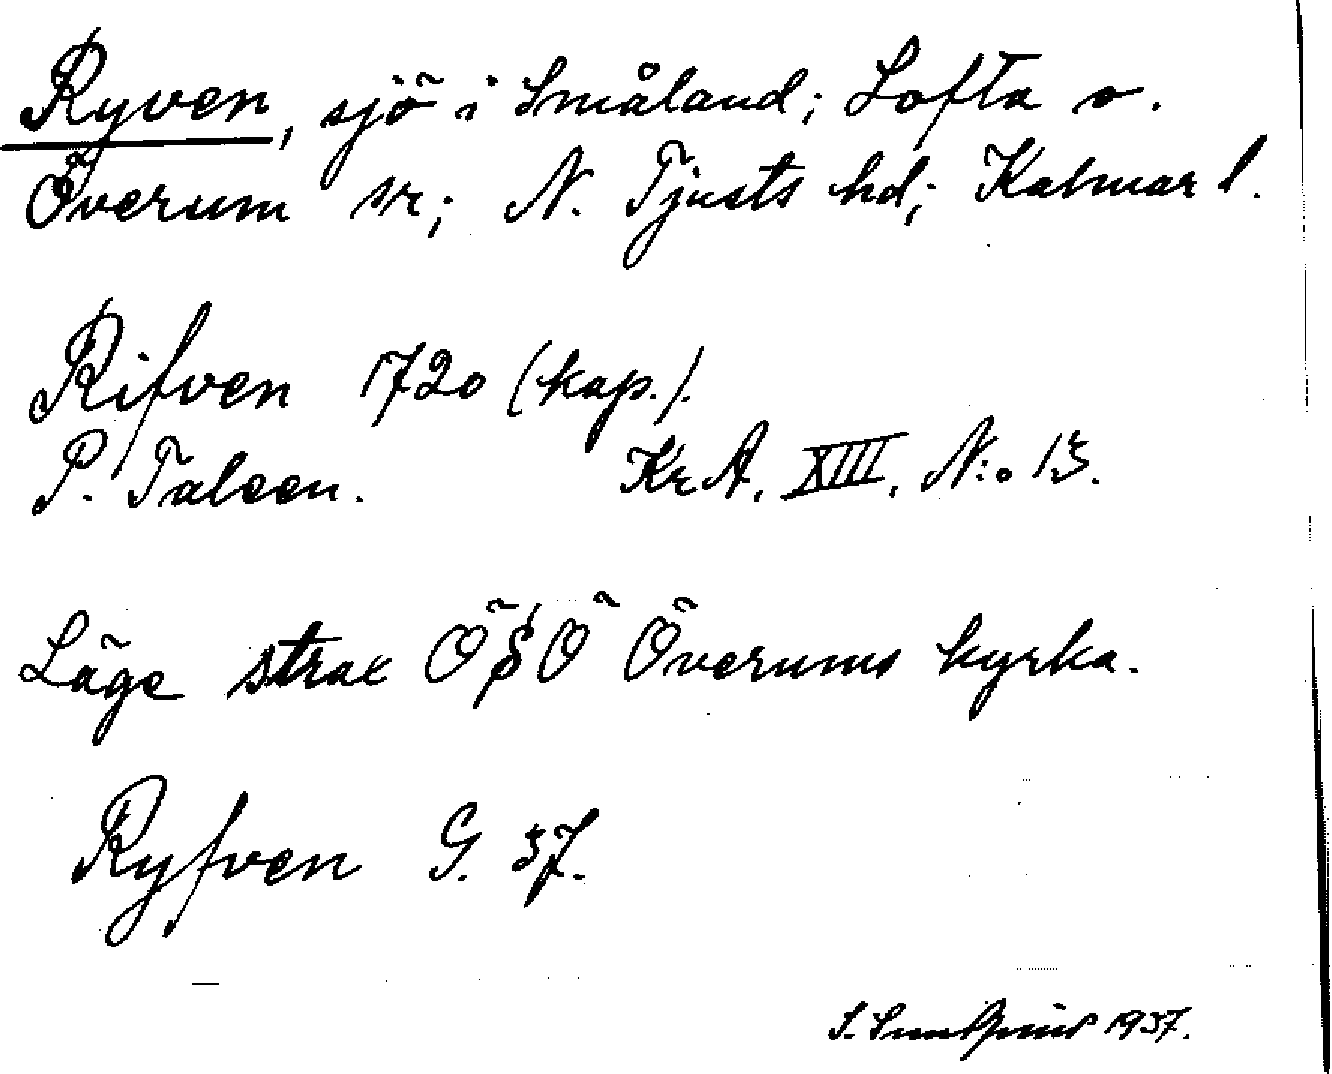 Ryven, sjö i Småland; Lofta o.
Överum sr; N. Tjusts hd; Kalmar l.
Rifven 1720 (kop.).
P. Talsen. KrA. XIII. N:o 13.
Läge strax ÖSÖ Överums kyrka.
Ryfven G. 37.
S. 1937.